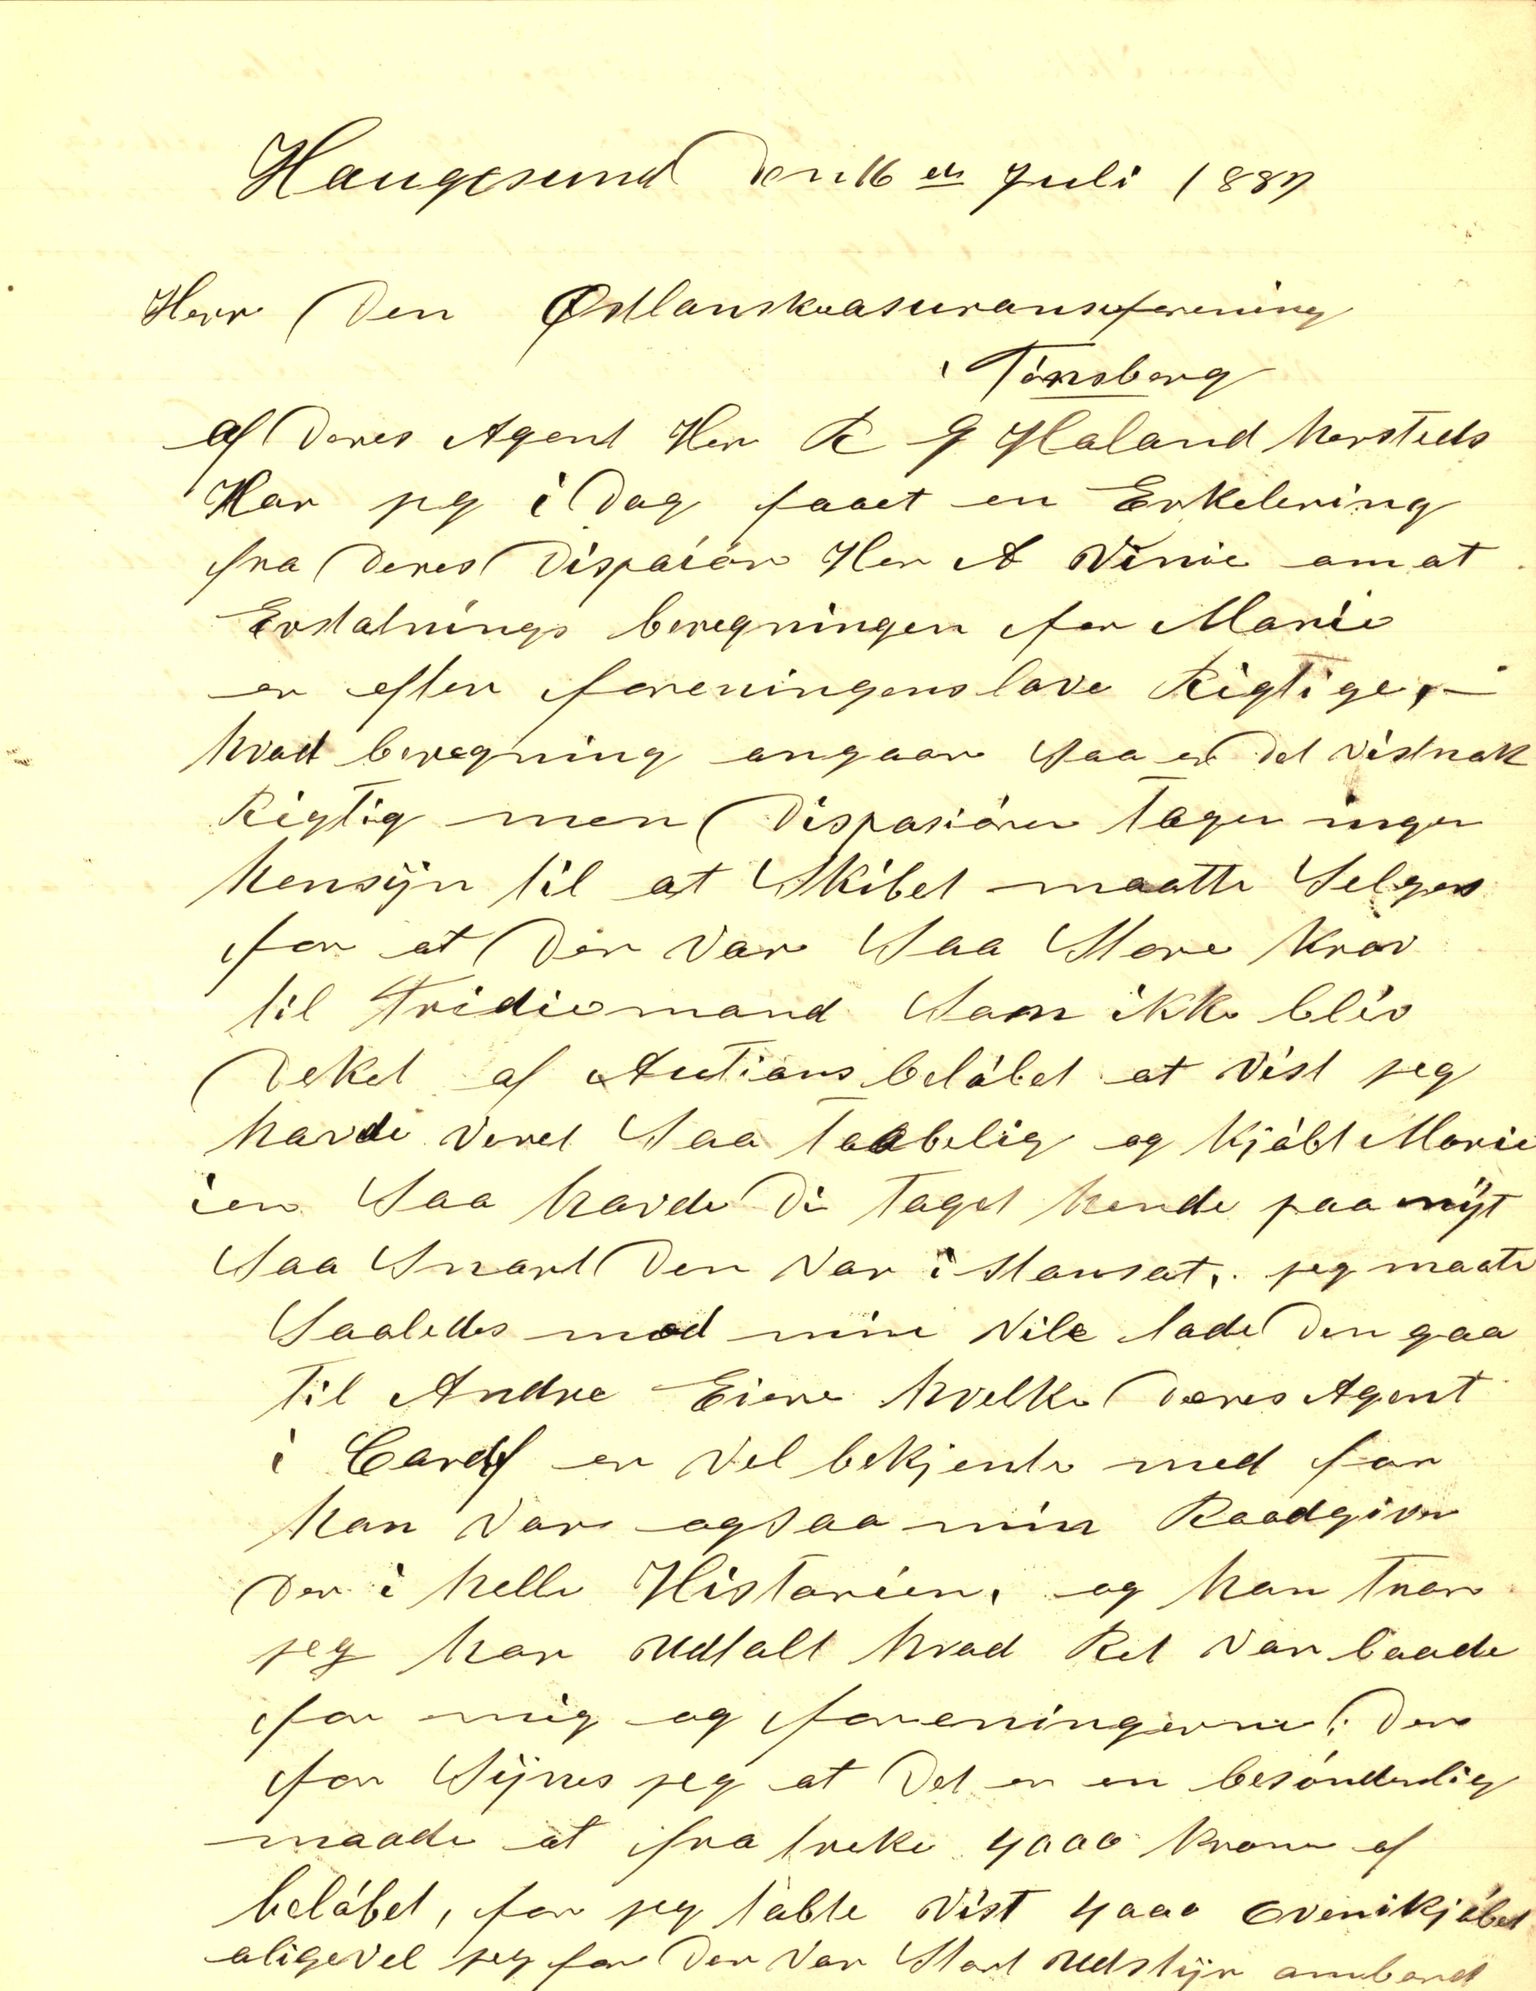 Haugesund den 16 en Juli 1887
Herr Den Østlanskeasuranseforening
i Tönsberg
af Deres Agent Her R G Haland hersteds
Har jeg i Dag faaet en Erkelering
fra Deres Dispaiör Her A Vinie om at
Erstatnings beregningen for Marie
er efter foreningens love Rigtige, –
hvad beregning angaar saa er det vistnok
Rigtig men Dispasiören tager ingen
hensÿn til at Skibet maatte Selges
for at Der var Saa Store krav
til Tridiemand Som ikke blev
Deket af Autions belöbet at vist jeg
havde veret Saa taabelig og kjöbt Marie
ien Saa havde Di taget hende paa nÿt
Saa Snart Den var i Stansat, jeg maate
Saaledes mod mine Vile lade Den gaa
til Andre Eiere hvelke Deres Agent
i Cardf er vel bekjente med for
han var ogsaa min Raadgiver
Der i helle Historien, og han tror
jeg har udtalt hvad Ret var baade
for mig og foreningerne; Der
for Sÿnes jeg at Det er en besönderlig
maade at fra treke 4000 kroner af
belöbet, for jeg tabte vist 4000 ovenikjöbet
aligevel jeg for Der var Stort udstÿr ombord